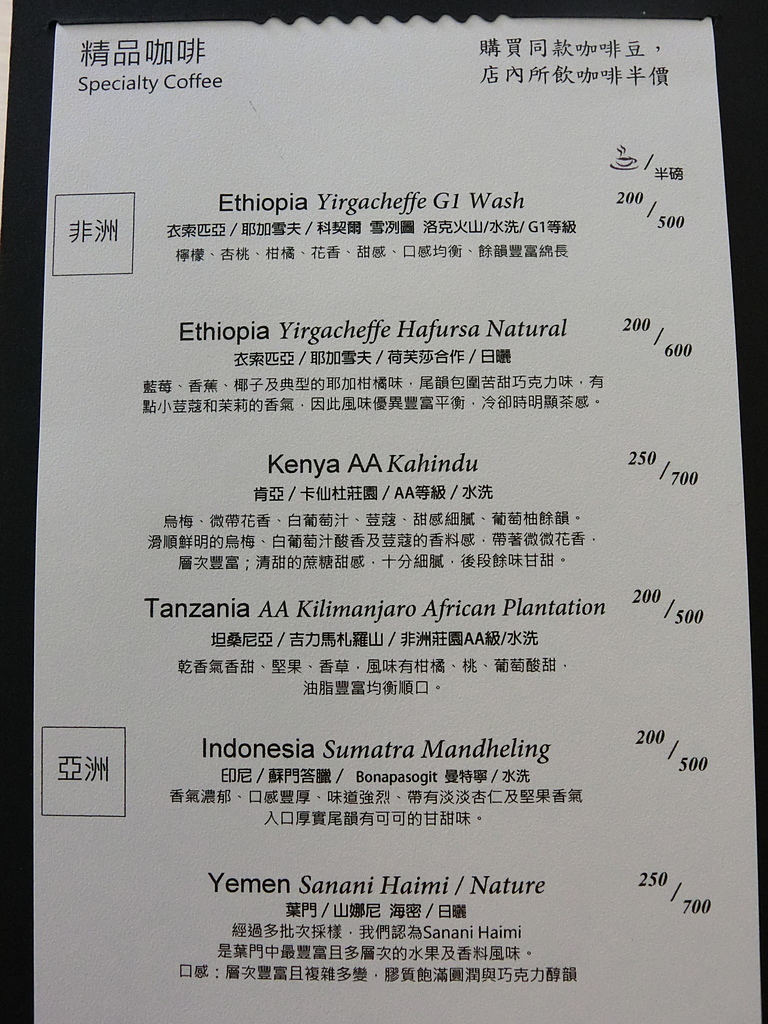 精品咖啡
Specialty Coffee
購買同款咖啡豆，
店內所飲咖啡半價
/半磅
非洲
Ethiopia Yirgacheffe G1 Wash
200/500
衣索匹亞/耶加雪夫/科契爾 雪冽圖 洛克火山/水洗/G1等級
檸檬、杏桃、柑橘、花香、甜感、口感均衡、餘韻豐富綿長
Ethiopia Yirgacheffe Hafursa Natural
200/600
衣索匹亞/耶加雪夫/荷芙莎合作/日曬
藍莓、香蕉、椰子及典型的耶加柑橘味，尾韻包圍苦甜巧克力味，有
點小荳蔻和茉莉的香氣，因此風味優異豐富平衡，冷卻時明顯茶感。
Kenya AA Kahindu
250/700
肯亞/卡仙杜莊園/AA等級/水洗
烏梅、微帶花香、白葡萄汁、荳蔻、甜感細膩、葡萄柚餘韻。
滑順鮮明的烏梅、白葡萄汁酸香及荳蔻的香料感，帶著微微花香，
層次豐富；清甜的蔗糖甜感，十分細膩，後段餘味甘甜。
Tanzania AA Kilimanjaro African Plantation
200/500
坦桑尼亞/吉力馬札羅山/非洲莊園AA級/水洗
乾香氣香甜、堅果、香草，風味有柑橘、桃、葡萄酸甜，
油脂豐富均衡順口。
亞洲
Indonesia Sumatra Mandheling
200/500
印尼/蘇門答臘/ Bonapasogit 曼特寧/水洗
香氣濃郁、口感豐厚、味道強烈、帶有淡淡杏仁及堅果香氣
入口厚實尾韻有可可的甘甜味。
Yemen Sanani Haimi / Nature
250/700
葉門/山娜尼 海密/日曬
經過多批次採樣，我們認為Sanani Haimi
是葉門中最豐富且多層次的水果及香料風味。
口感：層次豐富且複雜多變，膠質飽滿圓潤與巧克力醇韻